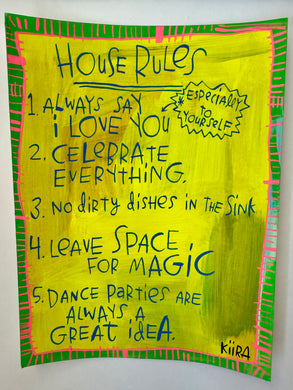 HOUSE RULES
1. ALWAYS SAY
i LOVE YOU
* ESPECIALLY
TO
YOURSELF
2. CELEBRATE
EVERYTHING.
3. NO DIRTY DISHES IN THE SINK
4. LEAVE SPACE
FOR MAGIC
5. DANCE PARTIES ARE
ALWAYS A
GREAT IDEA.
KiiRA